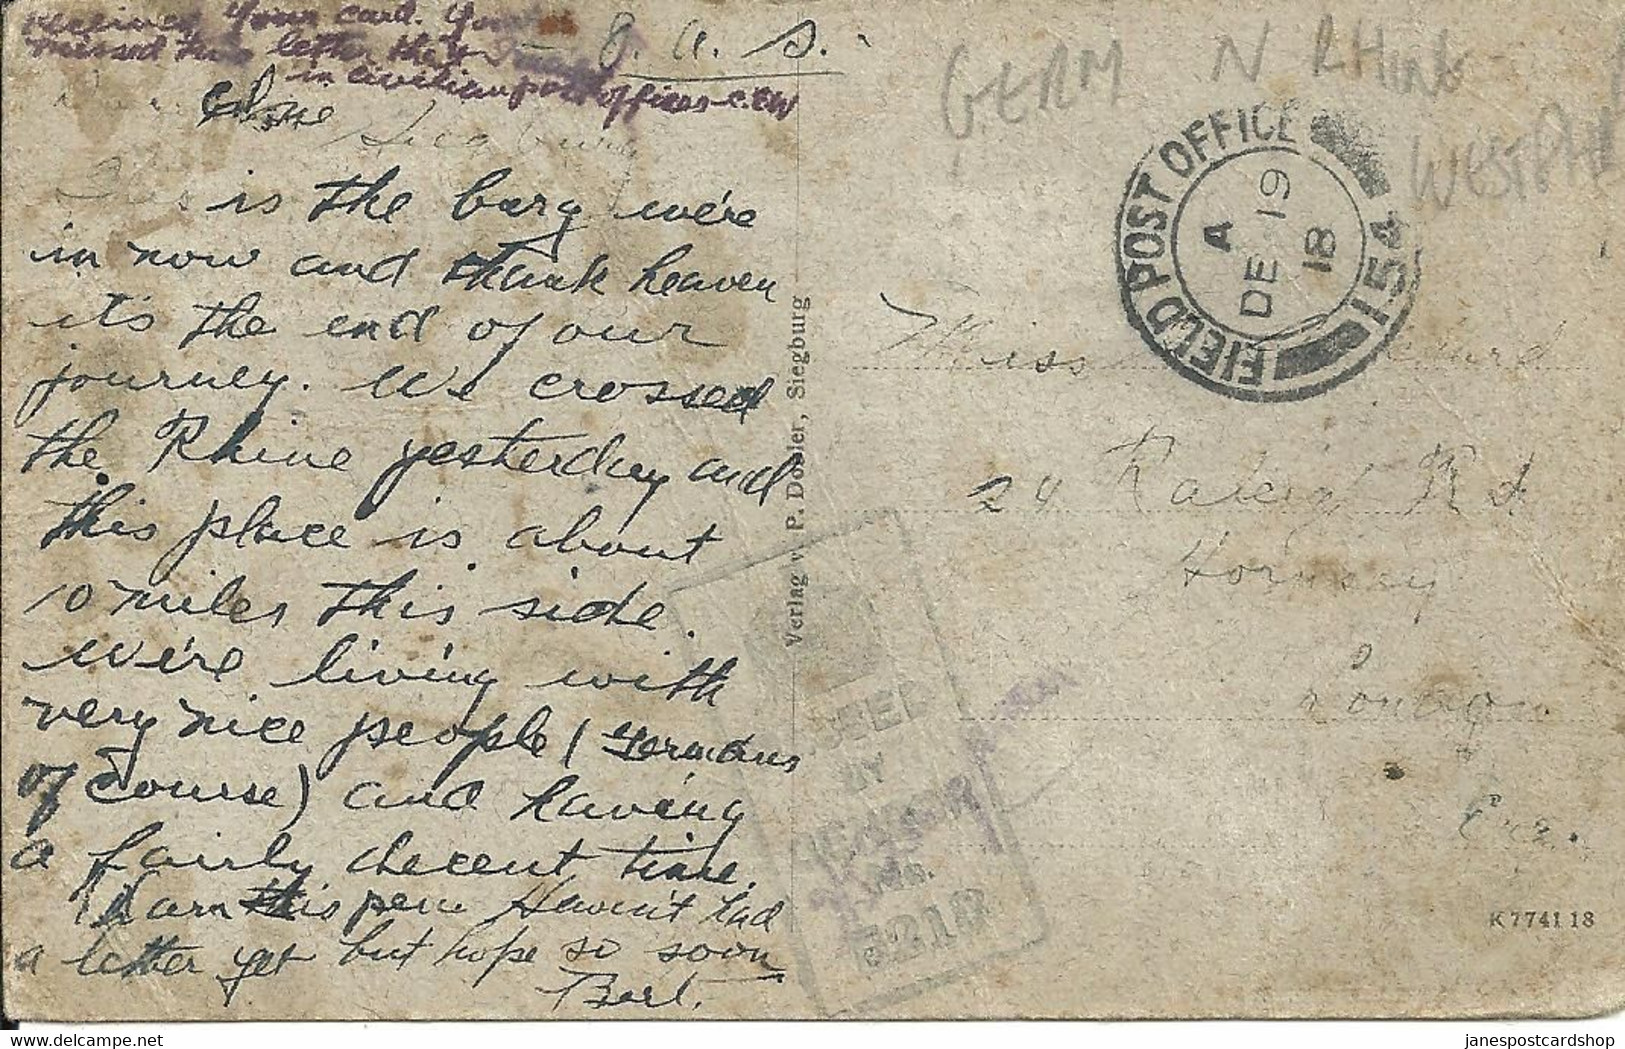 received your card. You
missed this letter that I
in civilian post offices - C.E.W
O. A. S.
Siegburg
This is the burg we're
in now and thank heaven
it's the end of our
journey. We crossed
the Rhine yesterday and
this place is about
10 miles this side.
We're living with
very nice people (Germans
of course) and having
a fairly decent time.
(Darn this pen. Haven't had
a letter yet but hope so soon
Bert.
Verlag v. P. Dobler, Siegburg
GERM N RHINE
WESTPH
FIELD POST OFFICE 154
A
DE 19
18
Miss
24 Raleigh Rd
Hornsey
London
Eng.
BY
5218
K 7741 18
janespostcardshop